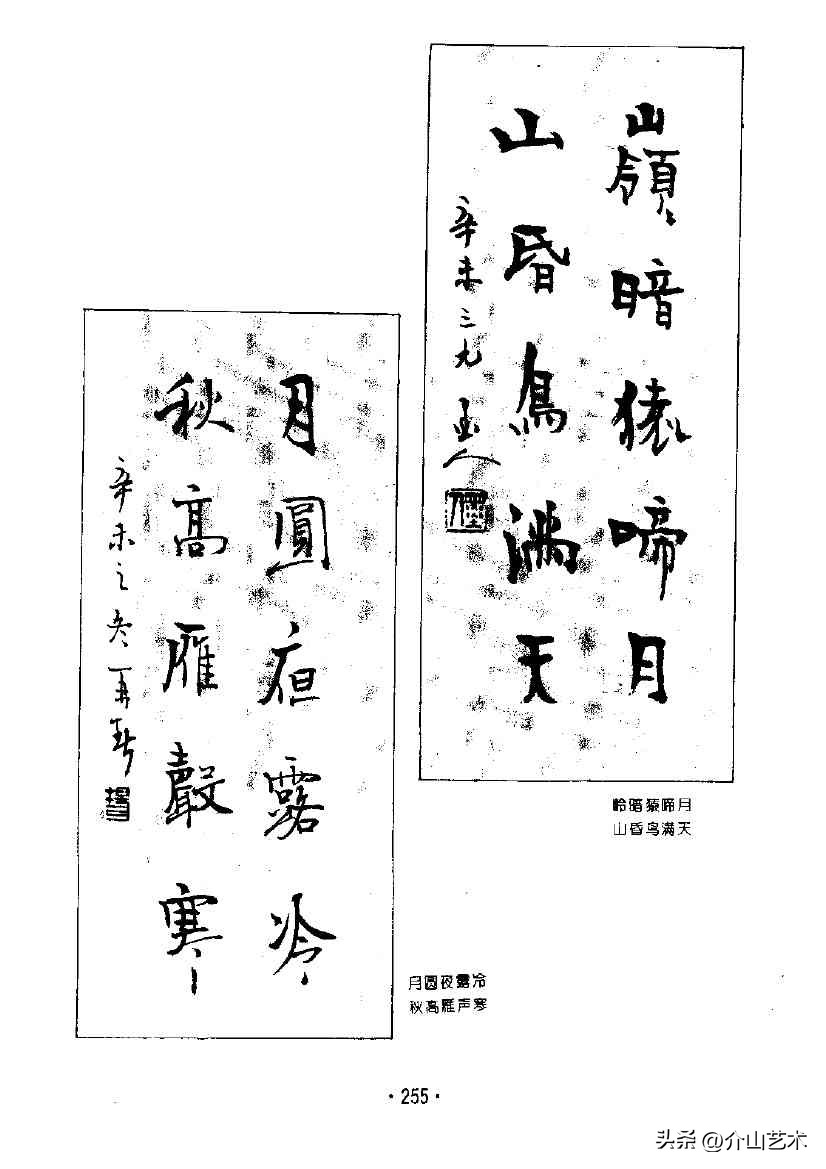 嶺暗猿啼月
山昏鳥滿天
辛未三九
岭暗猿啼月
山昏鸟满天
月圓亱露冷
秋高雁聲寒
辛未之冬
月圆夜露冷
秋高雁声寒
·255·
头条 @介山艺术